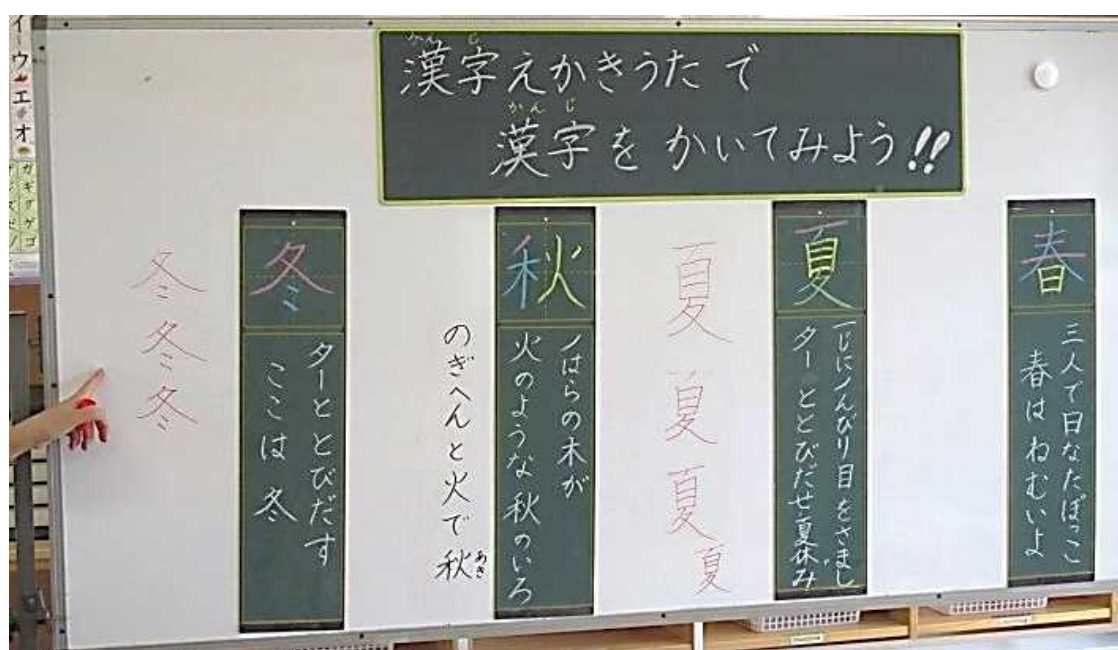 漢字えかきうたで
漢字をかいてみよう!!
かんじ
かんじ
春
三人で日なたぼっこ
春はねむいよ
夏
一じにノんびり目をさまし
ターととびだせ夏休み
夏
夏
夏
夏
秋
ノはらの木が
火のような秋のいろ
のぎへんと火で秋
あき
冬
ターととびだす
ここは冬
冬
冬
冬
イ
ウ
エ
オ
ガギグゲゴ